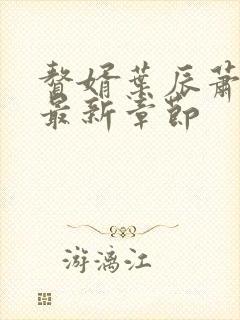 赘婿叶辰萧
最新章节
游漓江